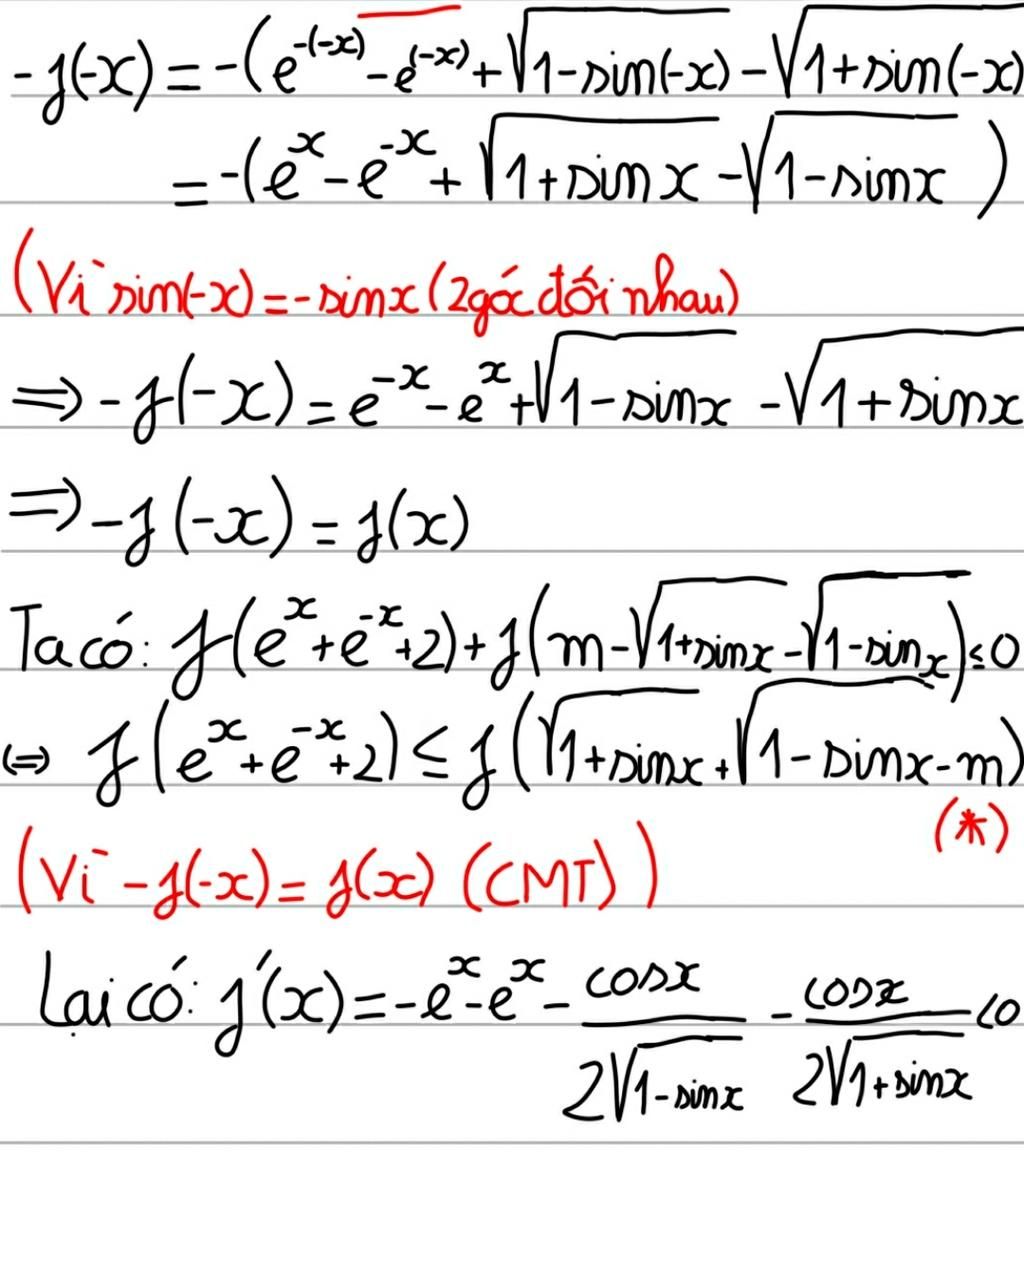 -f(-x) = -(e^{-(-x)} - e^{(-x)} + √(1-sin(-x)) - √(1+sin(-x))
= -(e^x - e^{-x} + √(1+sin x) - √(1-sin x))
(Vì sin(-x) = -sin x (2 góc đối nhau)
⇒ -f(-x) = e^{-x} - e^x + √(1-sin x) - √(1+sin x)
⇒ -f(-x) = f(x)
Ta có: f(e^x + e^{-x} + 2) + f(m - √(1+sin x) - √(1-sin x)) ≤ 0
⇔ f(e^x + e^{-x} + 2) ≤ f(√(1+sin x) + √(1-sin x) - m)
(*)
(Vì -f(-x) = f(x) (CMT))
Lại có: f'(x) = -e^x - e^x - cos x/(2√(1-sin x)) - cos x/(2√(1+sin x)) < 0